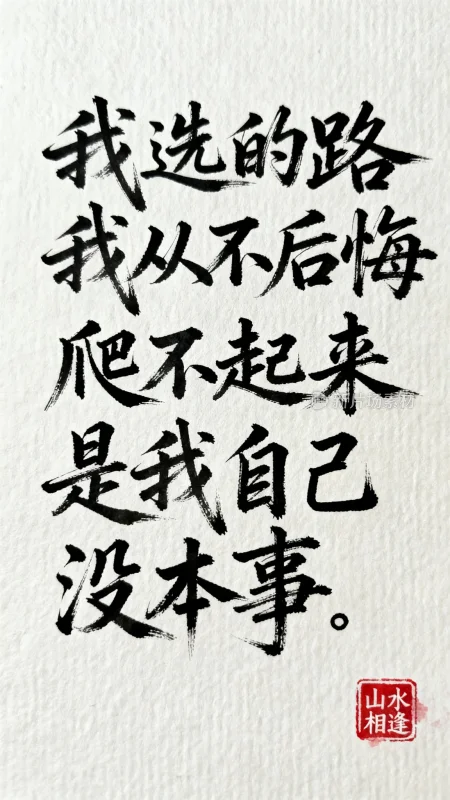 我选的路
我从不后悔
爬不起来
是我自己
没本事。
山水
相逢